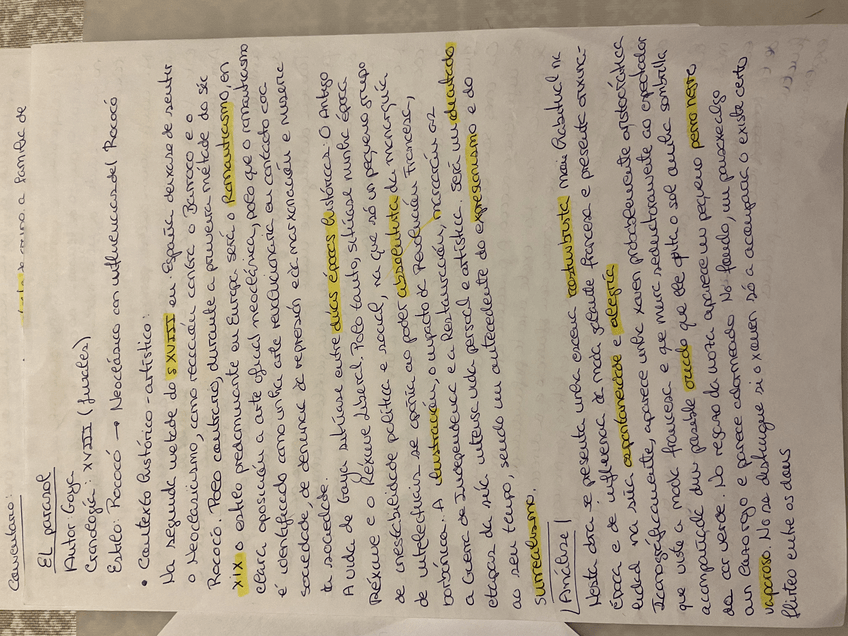 Comentario:
El parasol
Autor Goya
Cronología: XVIII (finales)
Estilo: Rococó → Neoclásico con influencias del Rococó
• Contexto histórico-artístico:
Na segunda metade do s XVIII en España deixase de sentir
o Neoclasicismo, como reacción contra o Barroco e o
Rococó. Polo contrario, durante a primeira métade do séc
XIX o estilo predominante en Europa será o Romantismo, en
clara oposición a arte oficial neoclásica, polo que o romantismo
é identificado como unha arte revolucionaria en contacto coa
sociedade, de denuncia á represión e á marxinación e miseria
da sociedade.
A vida de Goya sitúase entre dúas épocas históricas: O Antigo
Réxime e o Réxime Liberal. Polo tanto, sitúase nunha época
de inestabilidade política e social, na que só un pequeno grupo
de intelectuais se opoñía ao poder absolutista da monarquía
borbónica. A Ilustración, o impacto da Revolución Francesa,
a Guerra de Independencia e a Restauración, marcarán as
etapas da súa intensa vida persoal e artística. Será un adiantado
ao seu tempo, sendo un antecedente do expresionismo e do
surrealismo.
Análise
Nesta obra se presenta unha escena costumbrista moi habitual na
época e de influencia á moda galante francesa e presenta a xuven-
tude na súa espontaneidade e alegría.
Iconograficamente, aparece unha xoven probablemente aristocrática
que viste a moda francesa e que mira seductoramente ao espectador
acompañada dun posible criado que lle quita o sol cunha sombrilla
de cor verde. No regazo da moza aparece un pequeno perro negro
cun lazo rojo e parece adormilado. No fondo, un paisaxe algo
vaporoso. No se distingue si o xoven só a acompaña o existe certo
flirteo entre os dous